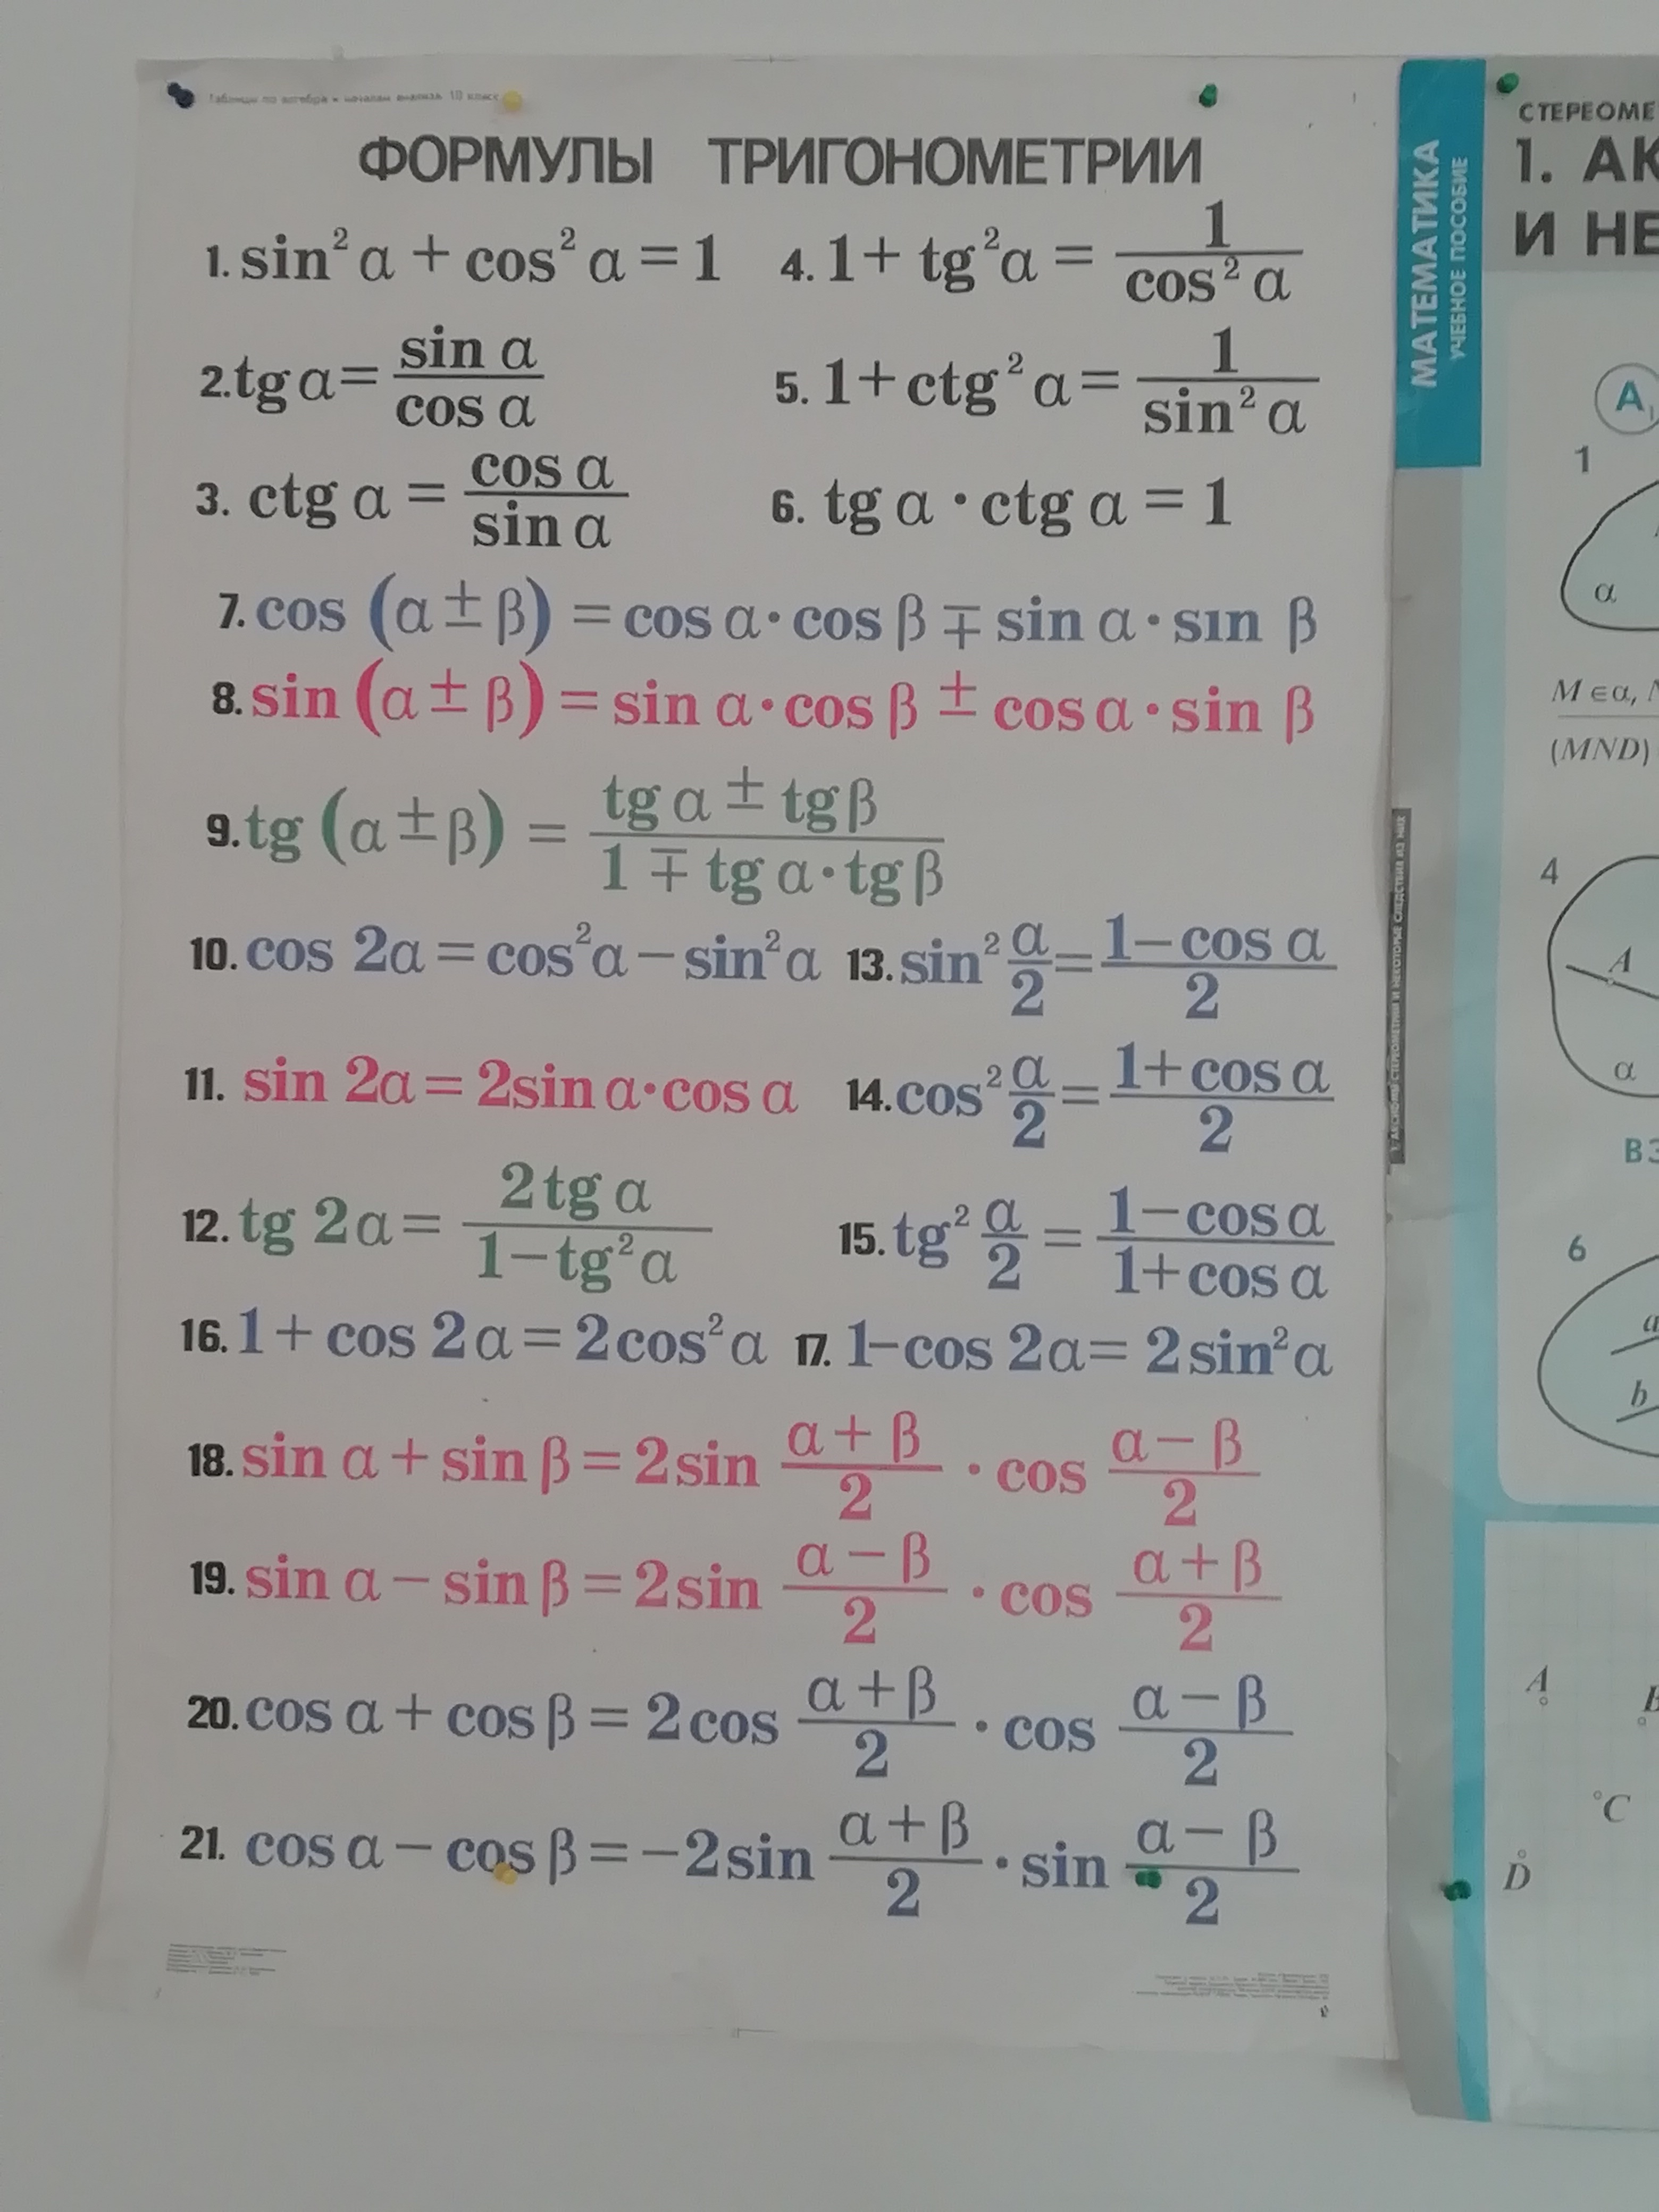 Таблицы по алгебре и началам анализа 10 класс
ФОРМУЛЫ ТРИГОНОМЕТРИИ
1. sin² α + cos² α = 1
4. 1 + tg² α = 1 / cos² α
2. tg α = sin α / cos α
5. 1 + ctg² α = 1 / sin² α
3. ctg α = cos α / sin α
6. tg α · ctg α = 1
7. cos (α ± β) = cos α · cos β ∓ sin α · sin β
8. sin (α ± β) = sin α · cos β ± cos α · sin β
9. tg (α ± β) = (tg α ± tg β) / (1 ∓ tg α · tg β)
10. cos 2α = cos² α − sin² α
13. sin² α/2 = (1 − cos α) / 2
11. sin 2α = 2 sin α · cos α
14. cos² α/2 = (1 + cos α) / 2
12. tg 2α = 2 tg α / (1 − tg² α)
15. tg² α/2 = (1 − cos α) / (1 + cos α)
16. 1 + cos 2α = 2 cos² α
17. 1 − cos 2α = 2 sin² α
18. sin α + sin β = 2 sin (α + β)/2 · cos (α − β)/2
19. sin α − sin β = 2 sin (α − β)/2 · cos (α + β)/2
20. cos α + cos β = 2 cos (α + β)/2 · cos (α − β)/2
21. cos α − cos β = −2 sin (α + β)/2 · sin (α − β)/2
МАТЕМАТИКА
УЧЕБНОЕ ПОСОБИЕ
1. АКСИОМЫ СТЕРЕОМЕТРИИ И НЕКОТОРЫЕ СЛЕДСТВИЯ ИЗ НИХ
СТЕРЕОМЕ
1. АК
И НЕ
А₁
1
α
M ∈ α, N
(MND)
4
A
α
ВЗ
6
a
b
A
B
C
D